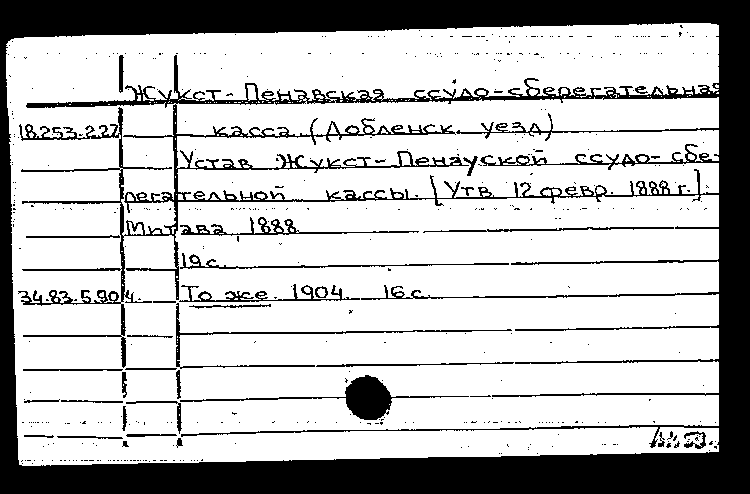 Жукст-Пенавская ссудо-сберегательная
18.253.227 касса (Добленск. уезд)
Устав Жукст-Пенауской ссудо-сбе-
регательной кассы. [Утв. 12 февр. 1888 г.].
Митава, 1888.
19 с.
34.83.5.904. То же. 1904. 16 с.